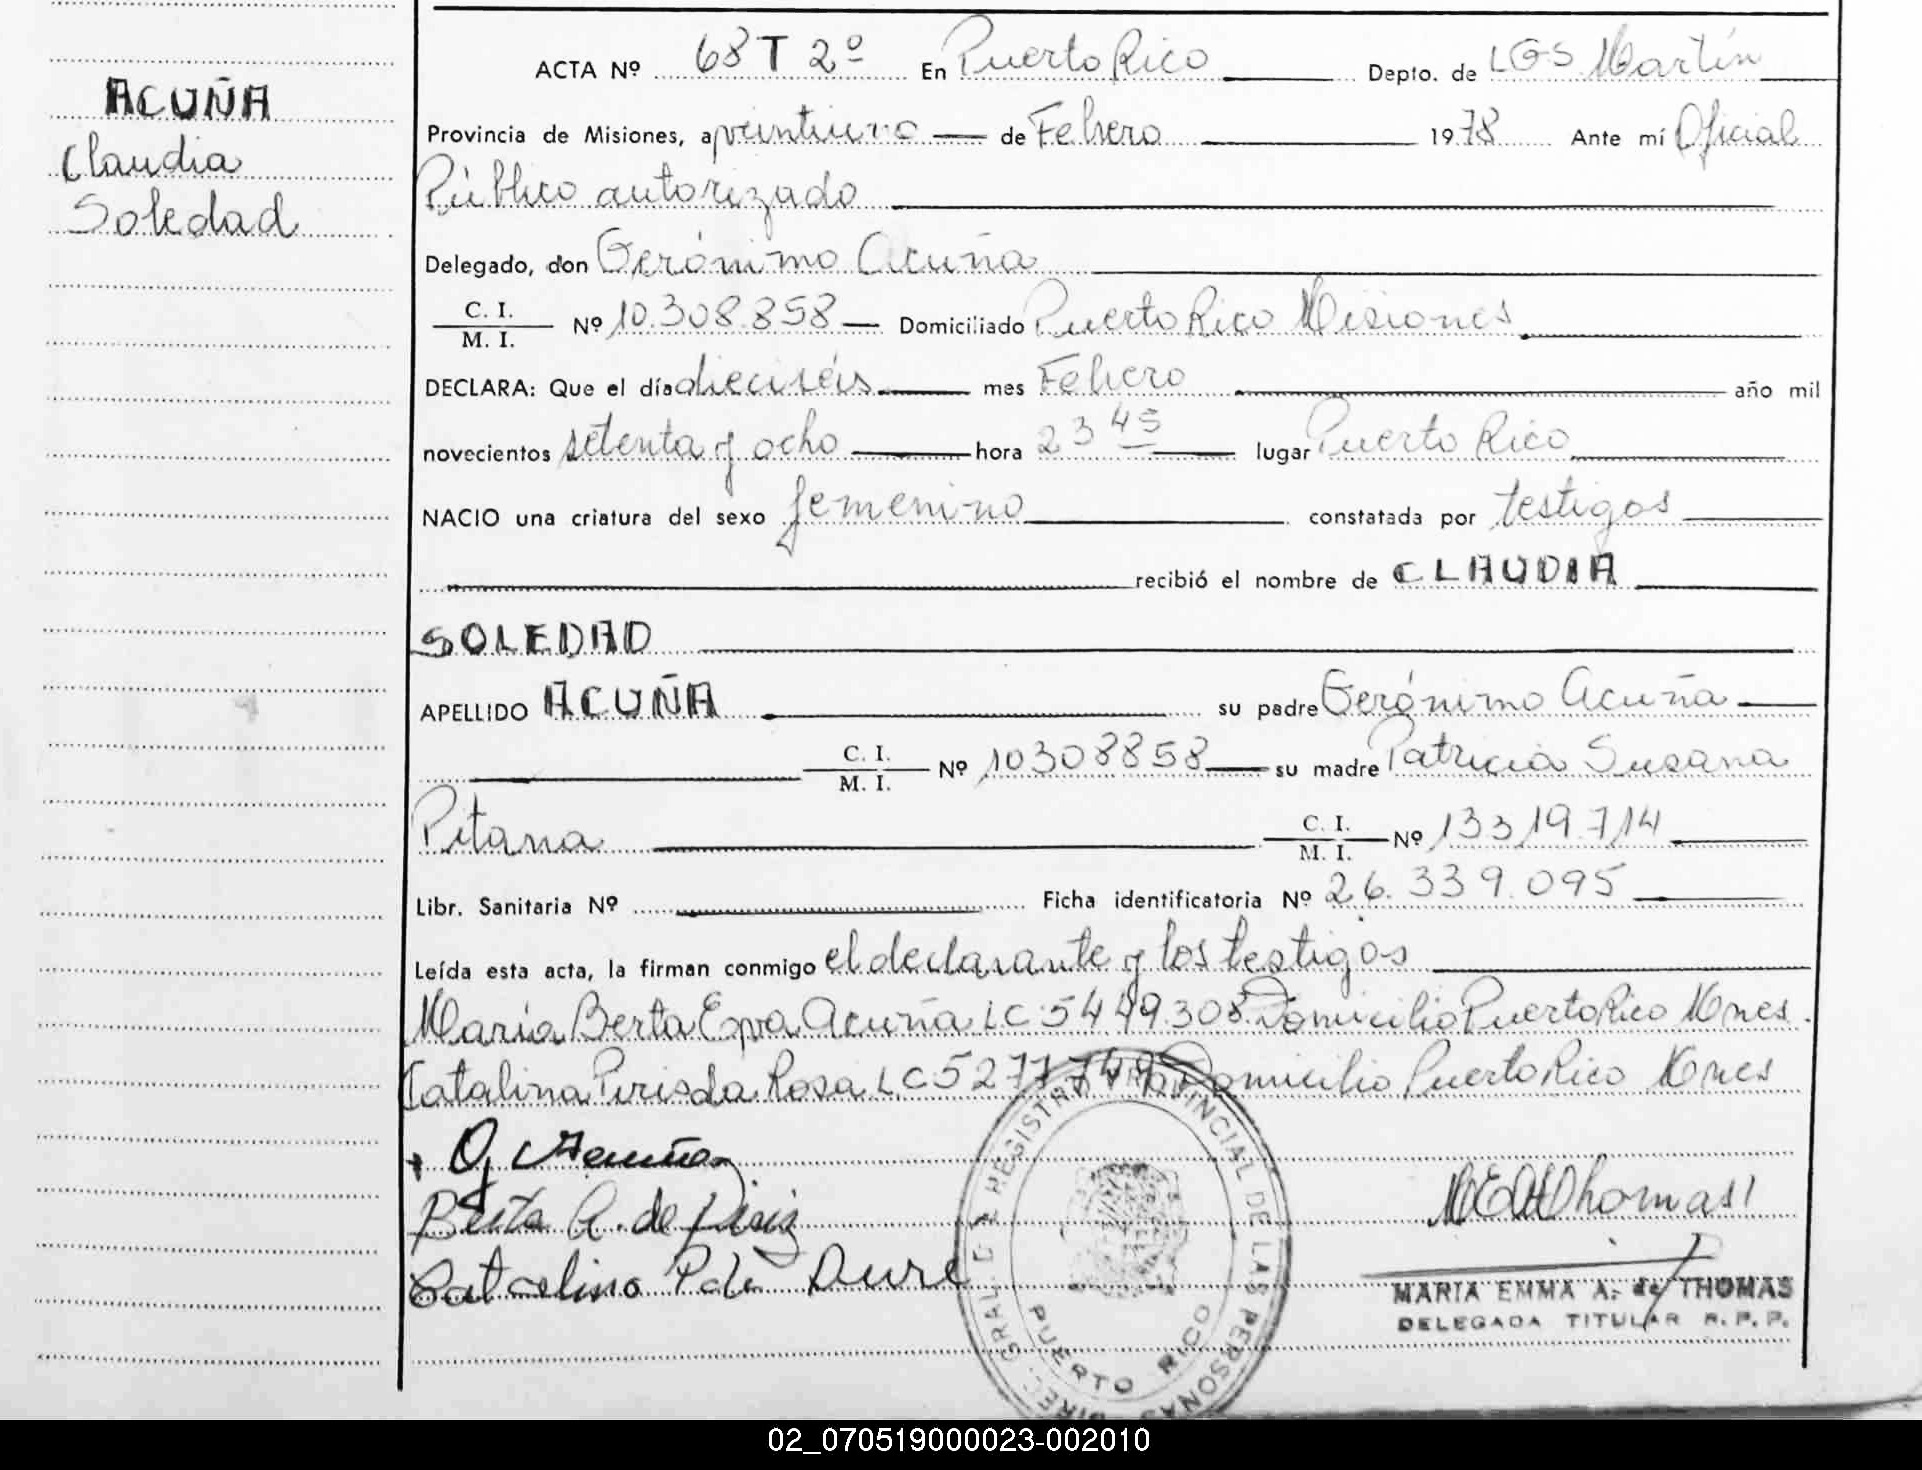 ACUÑA
Claudia
Soledad
ACTA Nº 68 T 2º En Puerto Rico Depto. de LGS Martín
Provincia de Misiones, a veintiuno de Febrero 1978 Ante mí Oficial
Público autorizado
Delegado, don Gerónimo Acuña
C. I. / M. I. Nº 10.308.858 Domiciliado Puerto Rico Misiones
DECLARA: Que el día dieciséis mes Febrero año mil
novecientos setenta y ocho hora 23 45 lugar Puerto Rico
NACIO una criatura del sexo femenino constatada por testigos
recibió el nombre de CLAUDIA
SOLEDAD
APELLIDO ACUÑA su padre Gerónimo Acuña
C. I. / M. I. Nº 10308858 su madre Patricia Susana
Pitana C. I. / M. I. Nº 13319.714
Libr. Sanitaria Nº Ficha identificatoria Nº 26.339.095
Leída esta acta, la firman conmigo el declarante y los testigos
María Berta Eva Acuña LC 5449.308 Domicilio Puerto Rico Mnes.
Catalina Rosa LC Domicilio Puerto Rico Mnes
G Acuña
Berta A. de Piriz
Catalina P de Dure
MEAThomas
MARIA EMMA A. de THOMAS
DELEGADA TITULAR R. P. P.
DIREC. GRAL. REGISTRO PROVINCIAL DE LAS PERSONAS
PUERTO RICO
02_070519000023-002010